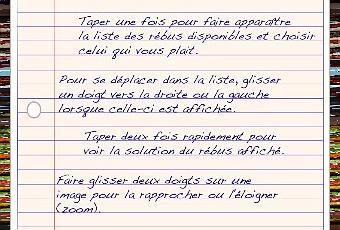 Taper une fois pour faire apparaître
la liste des rébus disponibles et choisir
celui qui vous plait.
Pour se déplacer dans la liste, glisser
un doigt vers la droite ou la gauche
lorsque celle-ci est affichée.
Taper deux fois rapidement pour
voir la solution du rébus affiché.
Faire glisser deux doigts sur une
image pour la rapprocher ou l'éloigner
(zoom).